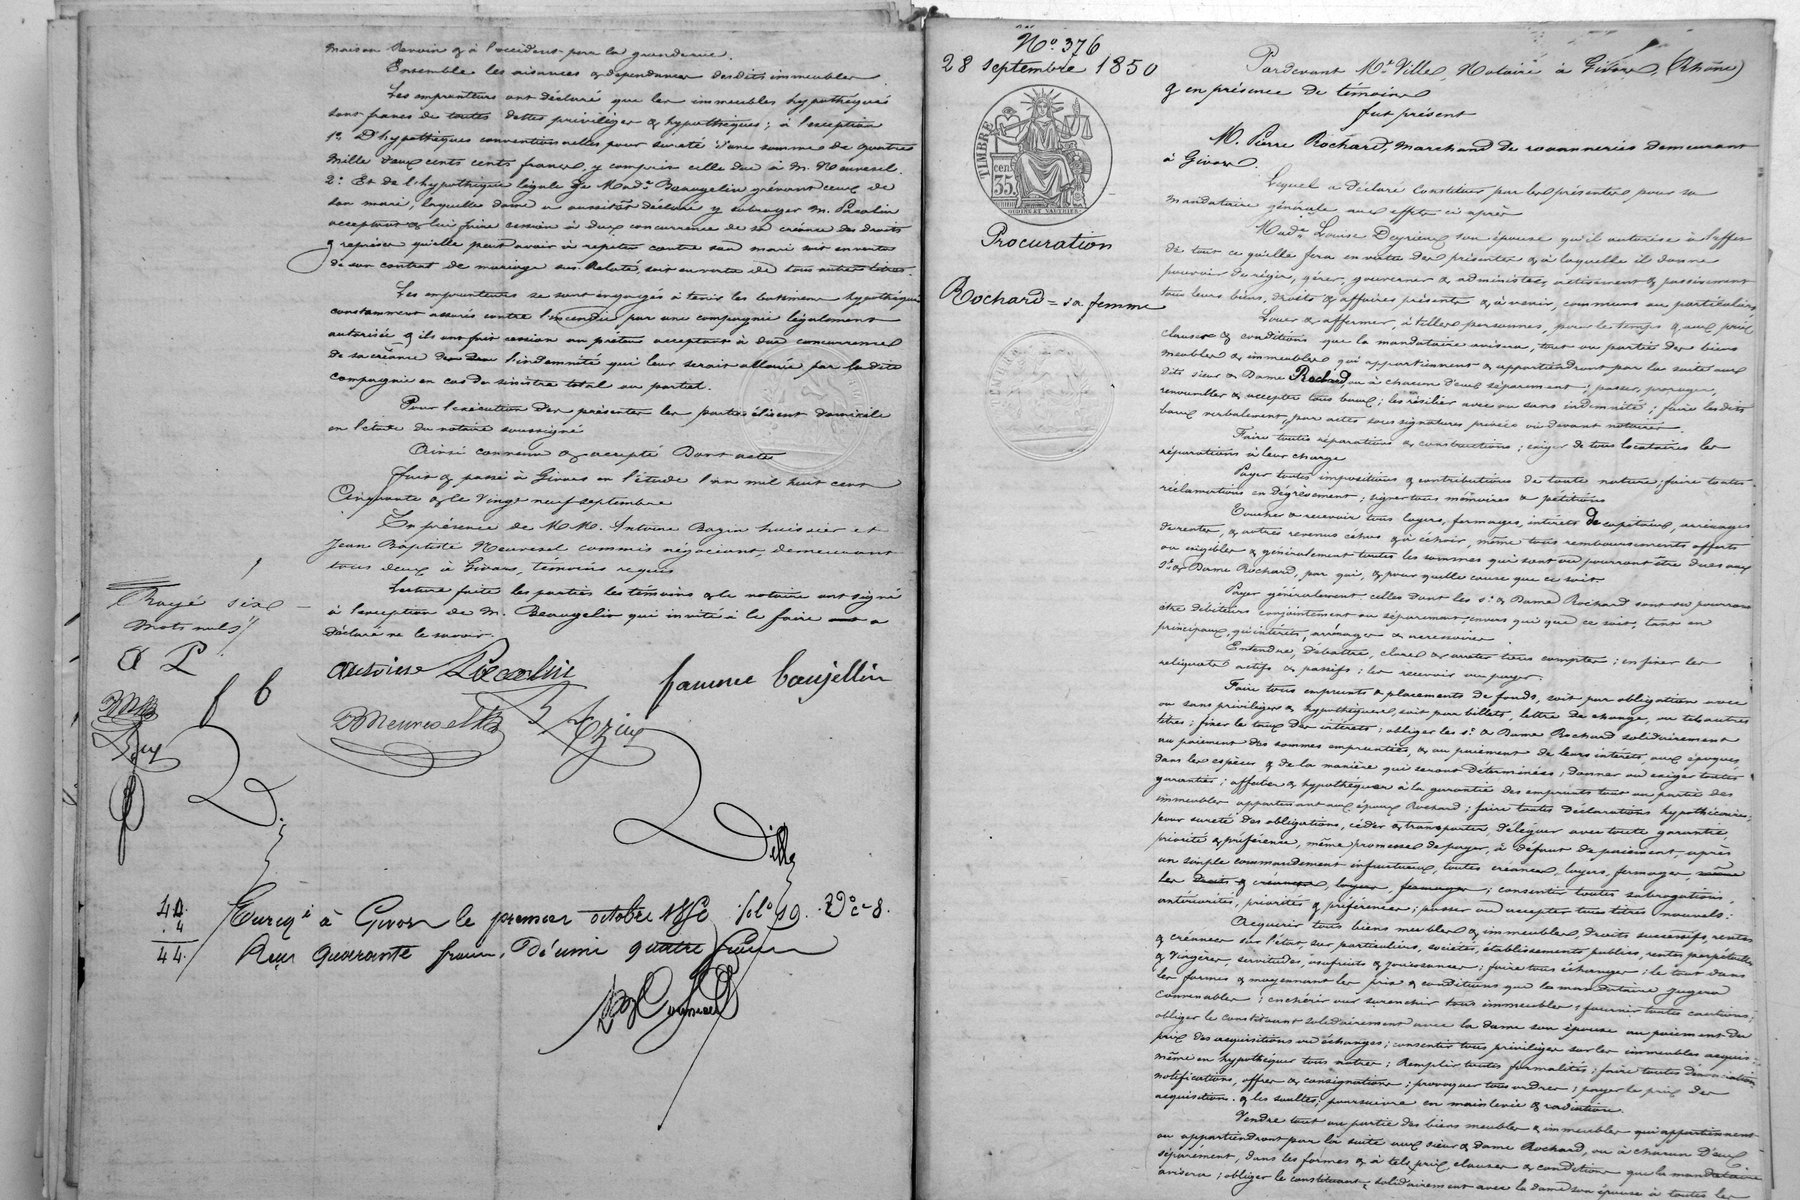 maison Renvin & à l'occident par la grande rue.
Ensemble les aisances & dépendances desdits immeubles
Les emprunteurs ont déclaré que les immeubles hypothéqués
sont francs de toutes dettes privilèges & hypothèques ; à l'exception
1° D'hypothèques conventionnelles pour sureté d'une somme de quatre
mille deux cents cents francs, y compris celle due à M. Neuvesel.
2° Et de l'hypothèque légale de Made Beaugelin grévant ceux de
son mari, laquelle dame a aussitôt déclaré y subroger M.
acceptant & lui faire cession à due concurrence de sa créance des droits
& reprises qu'elle peut avoir à répéter contre son mari soit en vertu
de son contrat de mariage sus-relaté, soit en vertu de tous autres titres.
Les emprunteurs se sont engagés à tenir les batiments hypothéqués
constamment assurés contre l'incendie par une compagnie légalement
autorisée & ils ont fait cession au prêteur acceptant à due concurrence
de sa créance de l'indemnité qui leur serait allouée par ladite
compagnie en cas de sinistre total ou partiel.
Pour l'exécution des présentes les parties élisent domicile
en l'étude du notaire soussigné
Ainsi convenu & accepté Dont acte
Fait & passé à Givors en l'étude l'an mil huit cent
Cinquante & le vingt neuf septembre
En présence de MM. Antoine Bazin huissier et
Jean Baptiste Neuvesel commis négociant, demeurant
tous deux à Givors, témoins requis
Lecture faite les parties les témoins & le notaire ont signé
à l'exception de M. Beaugelin qui invité à le faire a
déclaré ne le savoir.
Rayé six
mots nuls
A P
f b
antoine
faurure boujellin
Ville
40.
4
44.
Enregé à Givors le premier octobre 1850 folo 19. Ro c 8.
Reçu quarante francs, Décime quatre francs
No 376
28 septembre 1850
TIMBRE
35 cent
Procuration
Rochard = sa femme
Pardevant Me Ville, Notaire à Givors, (Rhône)
& en présence de témoins
fut présent
M. Pierre Rochard, marchand de rouenneries demeurant
à Givors.
Lequel a déclaré constituer par les présentes pour sa
mandataire générale aux effets ci après
Made Louise Deyrieux son épouse qu'il autorise à l'effet
de tout ce qu'elle fera en vertu des présentes & à laquelle il donne
pouvoir de régir, gérer, gouverner & administrer, activement & passivement
tous leurs biens, droits & affaires présents & à venir, communs ou particuliers
Louer & affermer, à telles personnes, pour le temps & aux prix
clauses & conditions que la mandataire avisera, tout ou partie des biens
meubles & immeubles qui appartiennent & appartiendront par la suite aux
dits sieur & Dame Rochard, ou à chacun d'eux séparément ; passer, proroger,
renouveller & accepter tous baux ; les résilier avec ou sans indemnité ; faire lesdits
baux verbalement, par actes sous signatures privées ou devant notaires.
Faire toutes réparations & constructions ; exiger de tous locataires les
réparations à leur charge
Payer toutes impositions & contributions de toute nature ; faire toutes
réclamations en dégrèvement ; signer tous mémoires & pétitions
Toucher & recevoir tous loyers, fermages, intérêts de capitaux, arrérages
de rentes, & autres revenus échus & à échoir, même tous remboursements offerts
ou exigibles & généralement toutes les sommes qui sont ou pourront être dues aux
Sr & Dame Rochard, par qui, & pour quelle cause que ce soit.
Payer généralement celles dont les Sr & Dame Rochard sont ou pourront
être débiteurs conjointement ou séparément envers qui que ce soit, tant en
principaux, qu'intérêts, arrérages & accessoires
Entendre, débattre, clore & arrêter tous comptes ; en fixer les
reliquats actifs & passifs ; les recevoir ou payer.
Faire tous emprunts & placements de fonds, soit par obligations avec
ou sans privilèges & hypothèques, soit par billets, lettre de change, ou tels autres
titres ; fixer le taux des intérêts ; obliger les Sr & Dame Rochard solidairement
au paiement des sommes empruntées, & au paiement de leurs intérêts, aux époques,
dans les espèces & de la manière qui seront déterminées ; donner ou exiger toutes
garanties ; affecter & hypothéquer à la garantie des emprunts tout ou partie des
immeubles appartenant aux époux Rochard ; faire toutes déclarations hypothécaires ;
pour sureté des obligations, céder & transporter, déléguer avec toute garantie,
priorité & préférence, même promesse de payer, à défaut de paiement, après
un simple commandement infructueux, toutes créances, loyers, fermages, même
les droits & créances, loyers, fermages ; consentir toutes subrogations,
antériorités, priorités & préférences ; passer ou accepter tous titres nouvels.
Acquérir tous biens meubles & immeubles, droits successifs, rentes
& créances sur l'état, sur particuliers, sociétés, établissements publics, rentes perpétuelles
& viagères, servitudes, usufruits & jouissances ; faire tous échanges ; le tout dans
les formes & moyennant les prix & conditions que la mandataire jugera
convenables ; enchérir ou surenchérir tous immeubles ; fournir toutes cautions ;
obliger le constituant solidairement avec la dame son épouse au paiement du
prix des acquisitions ou échanges ; consentir tous privilèges sur les immeubles acquis ;
même en hypothéquer tous autres ; Remplir toutes formalités ; faire toutes dénonciations
notifications, offres & consignations ; provoquer tous ordres ; payer le prix des
acquisitions & les soultes ; poursuivre en mainlevée & radiation.
Vendre tout ou partie des biens meubles & immeubles qui appartiennent
ou appartiendront par la suite aux sieur & dame Rochard, ou à chacun d'eux
séparément, dans les formes & à tels prix, clauses & conditions que la mandataire
avisera ; obliger le constituant, solidairement avec la dame son épouse à toutes les